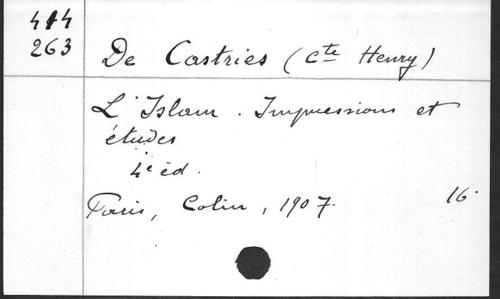 414
263
De Castries (Cte Henry)
L'Islam. Impressions et
études
4e éd.
Paris, Colin, 1907. 16.